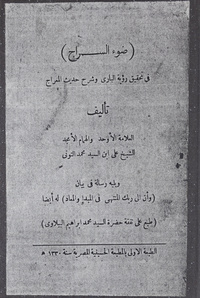 ( ضوء الســـراج )
فى تحقيق رؤية البارى وشرح حديث المعراج
تأليف
العلامة الأوحد والهمام الأمجد
الشيخ على ابن السيد محمد التونى
ويليه رسالة فى بيان
( وأن الى ربك المنتهى فى المبدإ والمعاد ) له أيضا
( طبع على نفقة حضرة السيد محمد ابراهيم الببلاوى )
الطبعة الاولى بالمطبعة الحسينية المصرية سنة ١٣٣٠ هـ